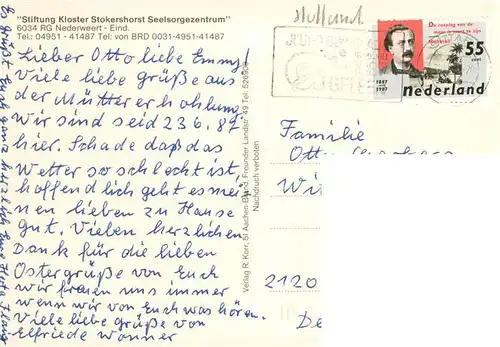 "Stiftung Kloster Stokershorst Seelsorgezentrum"
6034 RG Nederweert - Eind.
Tel.: 04951 - 41487 Tel: von BRD 0031-4951-41487
Lieber Otto liebe Emmy!
Viele liebe grüße aus
der Müttererhohlung.
Wir sind seid 23.6.87
hier. Schade daß das
Wetter so schlecht ist,
hoffendlich geht es mei
nen lieben zu Hause
gut. Vielen herzlichen
Dank für die lieben
Ostergrüße von Euch
wir freuen uns immer
wenn wir von Euch was hören.
Viele liebe grüße von
Elfriede Wonner
Es grüßt Euch ganz herzlich Eure Herta
Verlag R. Korr, 51 Aachen-Brand, Freunder Landstr. 49 Tel. 520908
Nachdruck verboten
Holland
De roeping van de
mens is mens te zijn
Multatuli
55
cent
1887
1987
nederland
Familie
Otto
Wi
2120
De